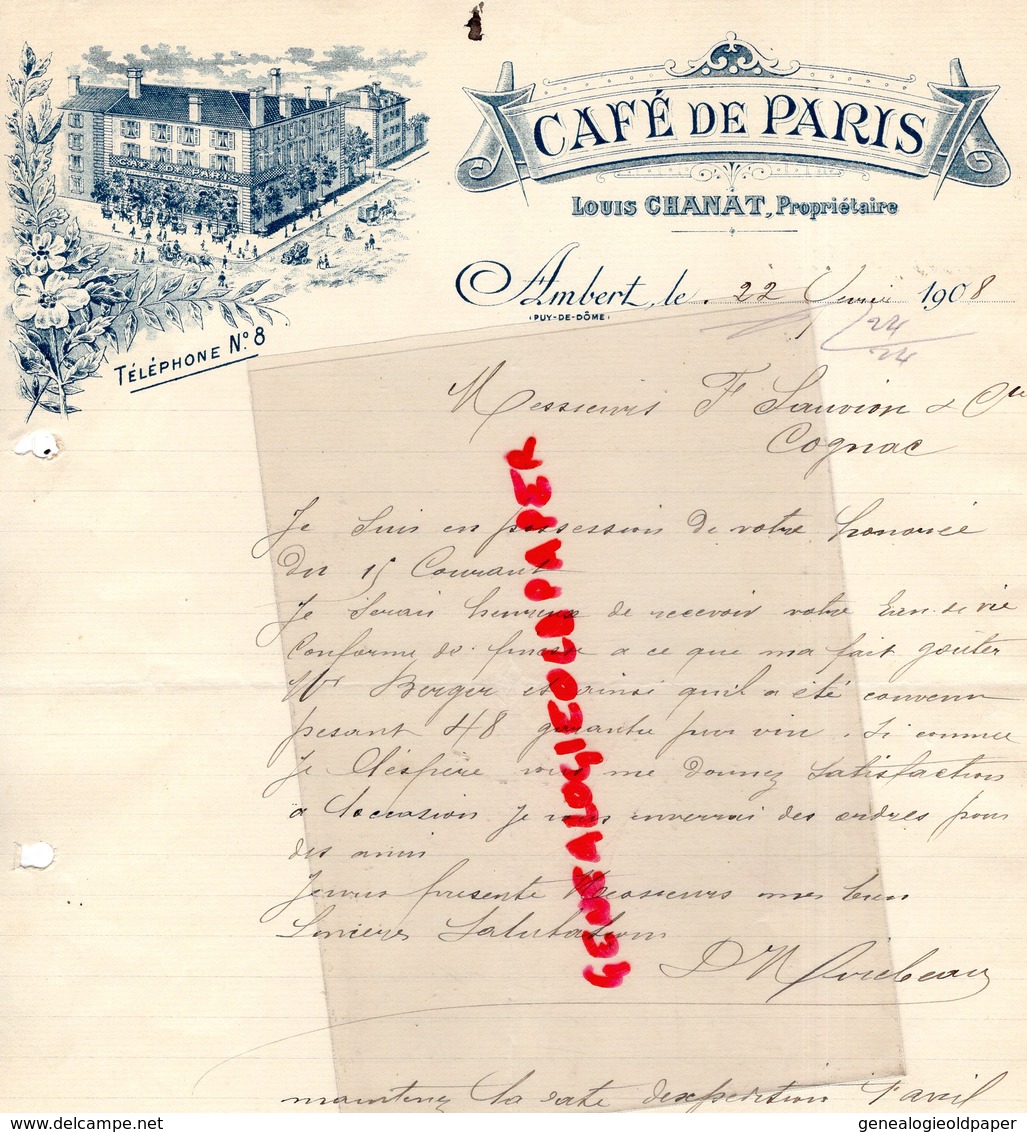 CAFÉ DE PARIS
CAFÉ DE PARIS
LOUIS CHANAT, Propriétaire
Ambert, le 22 1908
(PUY-DE-DÔME)
24
24
TÉLÉPHONE N° 8
Messieurs F Sauvion & Cie
Cognac
Je suis en possession de votre honorée
du 15 Courant
Je serais heureux de recevoir votre Eau de vie
Conforme de finesse a ce que ma fait goûter
Mr Berger et ainsi qu'il a été convenu
pesant 48 garantie pur vin. Si comme
Je l'éspère vous me donnez satisfaction
a l'occasion Je vous enverrai des ordres pour
des amis
Je vous présente Messieurs mes bien
Sincères Salutations
maintenez la date d'expédition 1er avril
GENEALOGIEOLDPAPER
genealogieoldpaper